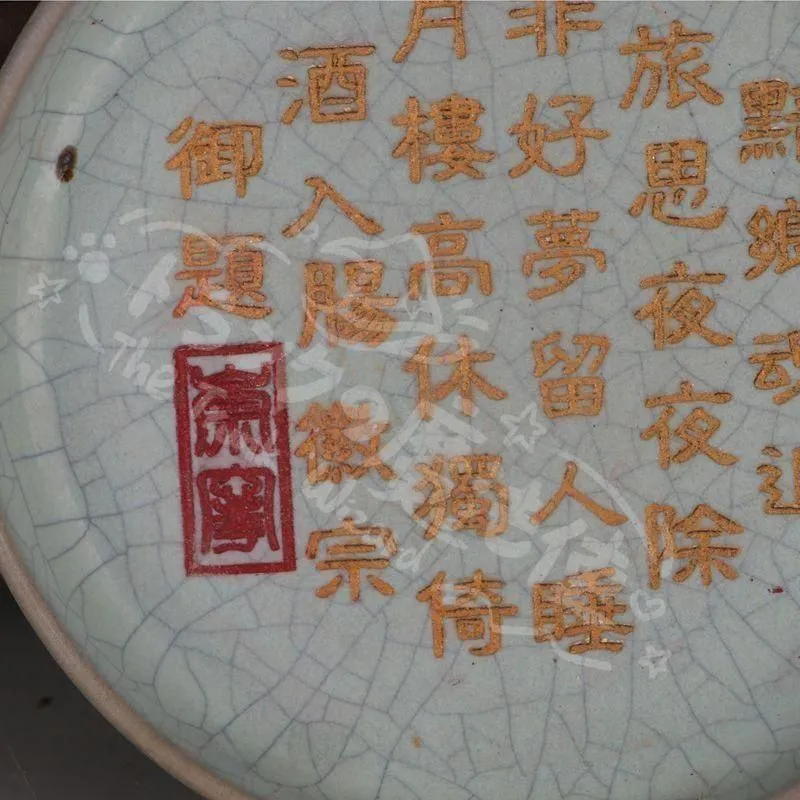 黯鄉魂追
旅思夜夜除
非好夢留人睡
月樓高休獨倚
酒入腸徽宗
御題
The
Wizard